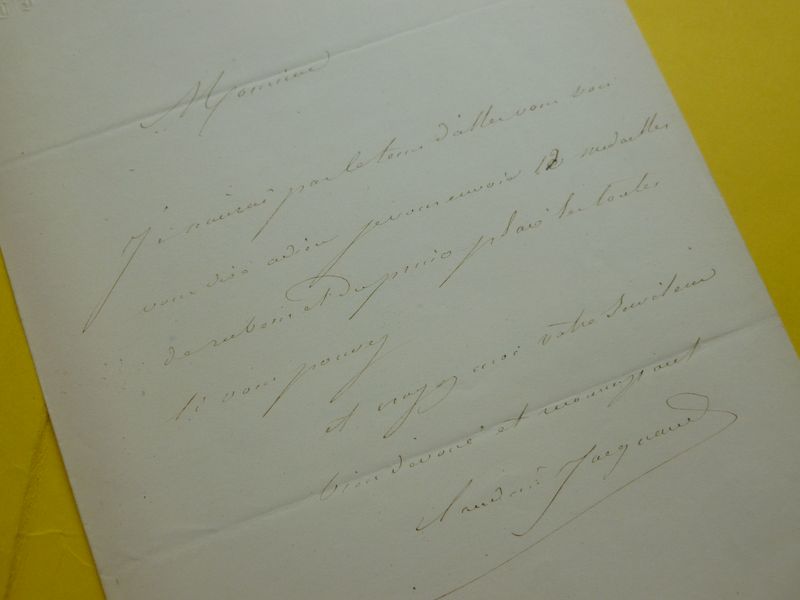 Monsieur
Je n'aurai pas le tems d'aller vous voir
vous dire adieu je vous envoie 12 medailles
de rubens et du puis placé les toutes
si vous pouvez
et croyez moi votre Serviteur
bien dévoué et reconnaissant
Claudius Jacquand